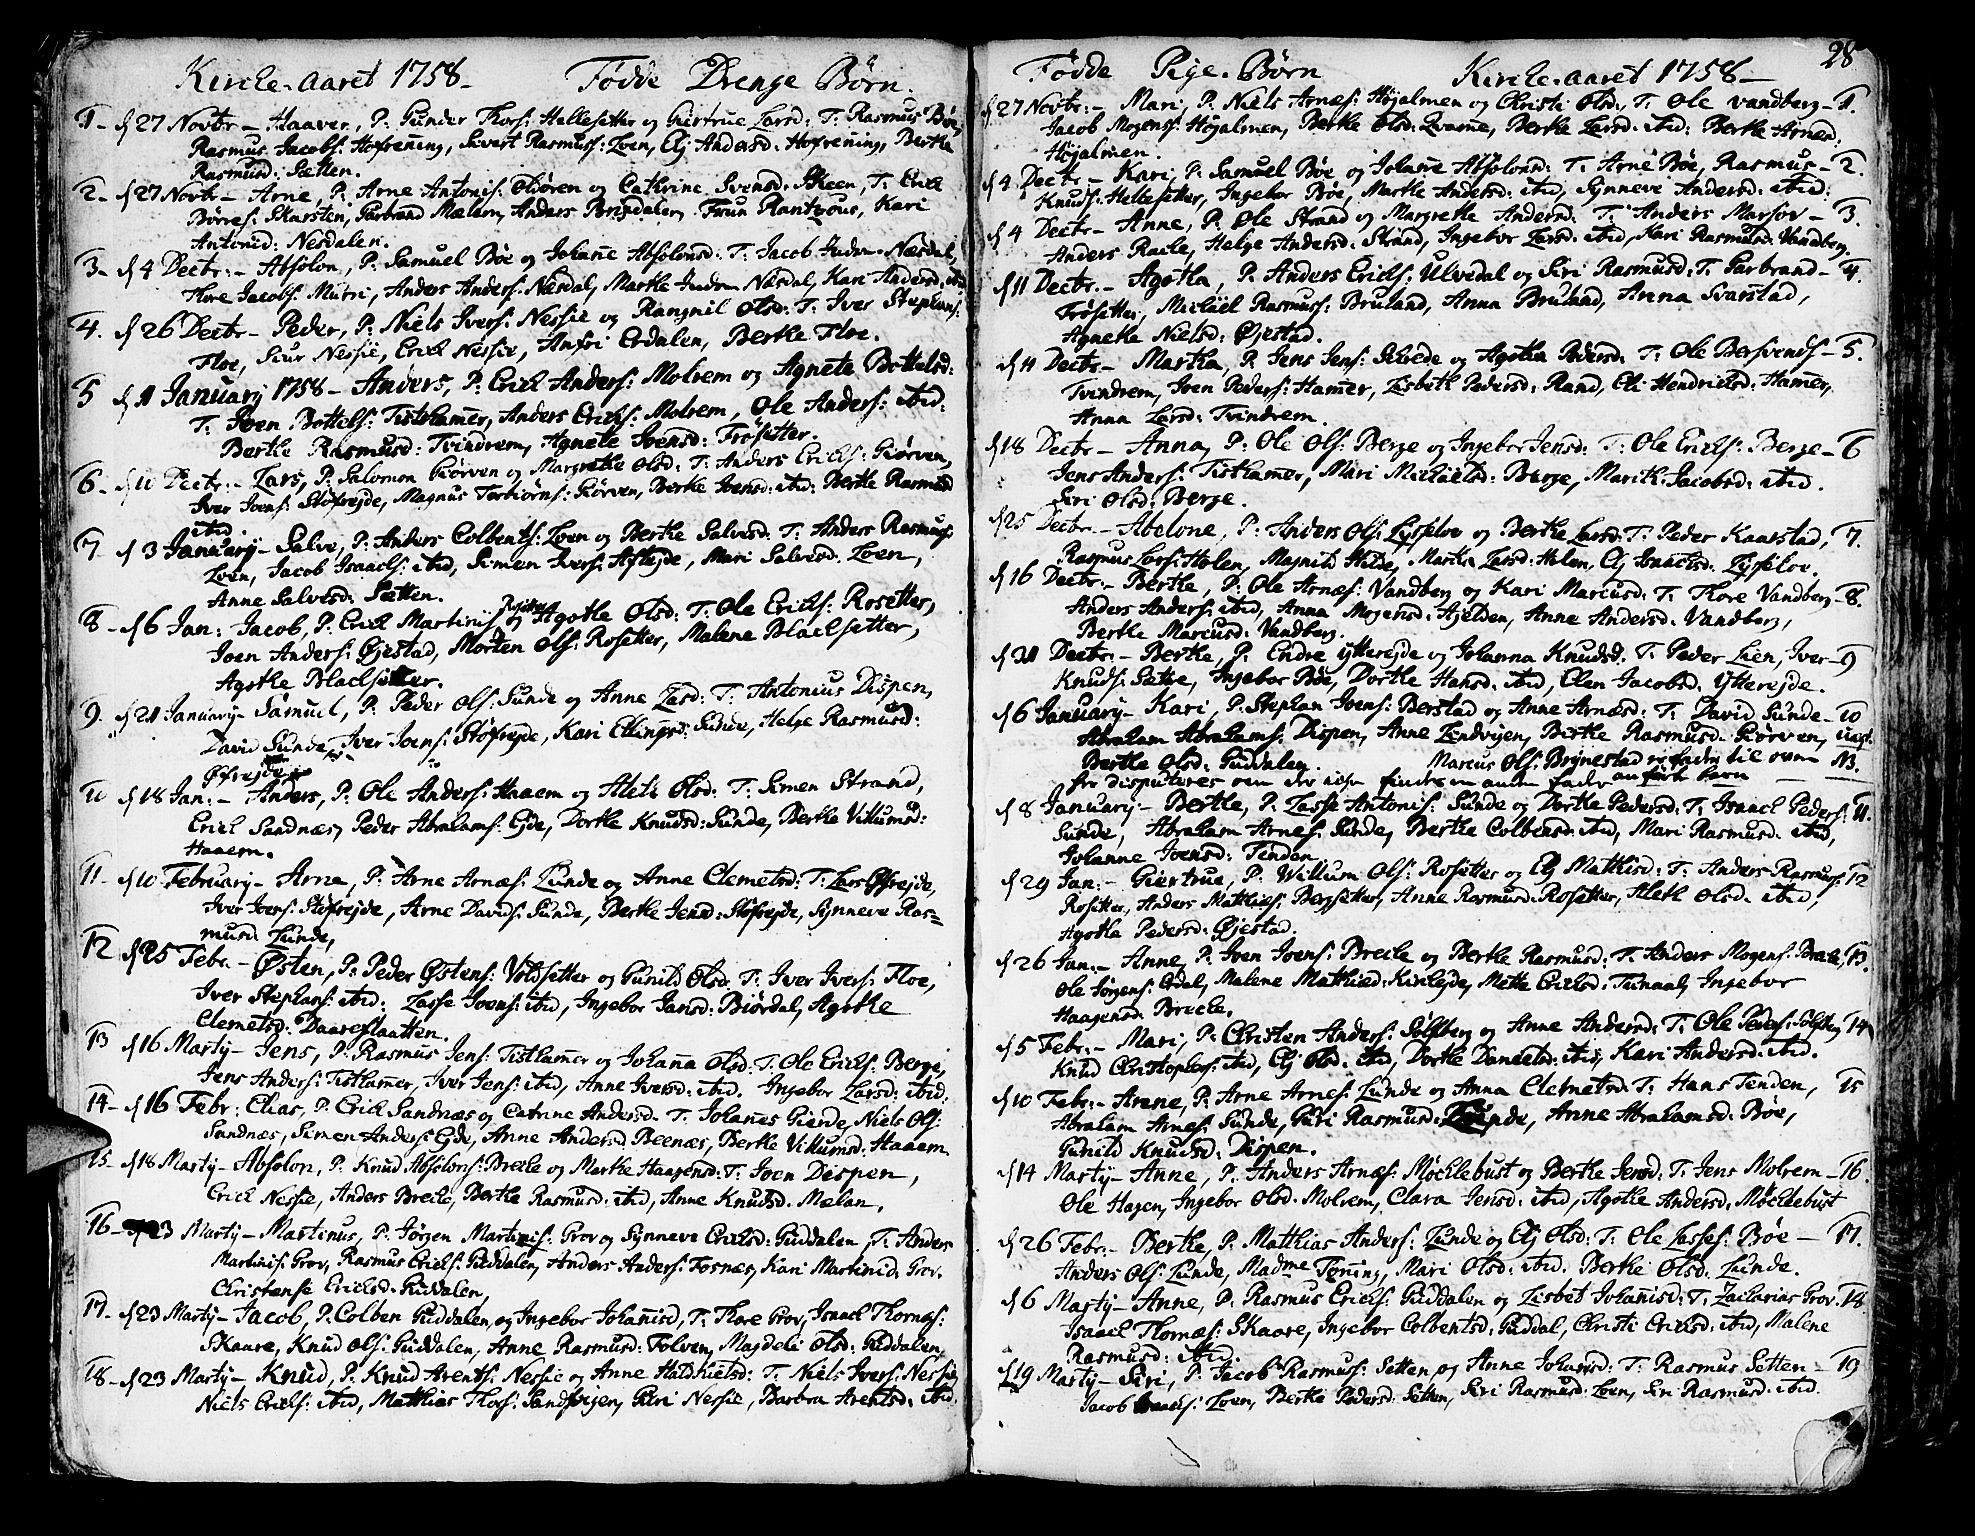 Kircke-aaret 1758- Födde Drenge Börn.
1- d 27 Novbr- Haaver, P: Gunder Thors: Hellesetter og Giertrue Larsd: T: Rasmus Böe,
Rasmus Jacobs: Hofrening, Sivert Rasmuss: Loen, Elj Andersd: Hofrening, Berthe
Rasmusd: Sætten.
2- d 27 Novbr- Arne, P: Arne Antonis: Oldören og Cathrine Svensd: Skeen, T: Erick
Börres: Skarsten, Garbrand Mælem, Anders Brigsdalen, Kari
Antonid: Nesdalen.
3- d 4 Decbr:- Absolon, P: Samuel Böe og Johanne Absolonsd: T: Jacob Nesdal,
Thore Jacobs: Muri, Anders Anders: Nesdal, Marthe Nesdal, Kari Andersd: ibid
4. d 26 Decbr- Peder, P: Niels Ivers: Nessie og Rangnil Olsd: T: Iver Stephens:
Floe, Siur Nessie, Erick Nessie, Anfri Erdalen, Berthe Floe.
5 d 1 January 1758- Anders, P: Erick Anders: Molrem og Agnete Bottelsd:
T: Joen Bottels: Tisthamer, Anders Ericks: Molrem, Ole Anders: ibid:
Berthe Rasmusd: Tvindrem, Agnete Joensd: Frösetter.
6- d 11 Decbr:- Lars, P: Salomon Giörven og Margrethe Olsd: T: Anders Ericks: Giörven,
Iver Joens: Stöfrejde, Magnus Torbiörns: Giörven, Berthe Joensd: ibid: Berthe Rasmusd
ibid.
7. d 3 January- Salve, P: Anders Colbents: Loen og Berthe Salvesd: T: Anders Rasmus:
Loen, Jacob Isaacks: ibid, Simen Ivers: Aflejde, Mari Salvesd: Loen,
Anne Salvesd: Sætten.
8- d 6 Jan: Jacob, P: Erick Martinis og Agothe Olsd: T: Ole Ericks: Rosetter,
Joen Anders: Øjestad, Morten Ols: Rosetter, Malene Blacksetter,
Agothe Blacksetter.
9. d 21 January- Samuel, P: Peder Ols: Sunde og Anne Larsd: T: Antonius Dispen,
David Sunde, Iver Joens: Stöfrejde, Kari Ellingsd: Sunde, Helge Rasmusd:
Øfrejde
10 d 18 Jan:- Anders, P: Ole Anders: Haaem og Aleth Olsd: T: Simen Strand,
Erick Sandnæs, Peder Abrahams: Eyde, Dorthe Knudsd: Sunde, Berthe Villumsd:
Haaem.
11- d 10 February- Arne, P: Arne Arnes: Lunde og Anne Clemetsd: T: Lars Øfrejde,
Iver Joens: Stöfrejde, Arne Davids: Sunde, Berthe Jensd: Stöfrejde, Synneve Ras=
musd: Lunde,
12 d 25 Febr.- Østen, P: Peder Østens: Voldsetter og Gunild Olsd: T: Iver Ivers: Floe,
Iver Stephans: ibid: Lasse Joens: ibid, Ingebor Jansd: Biördal, Agothe
Clemetsd: Daareslaatten.
13 d 16 Marty- Jens, P: Rasmus Jens: Tisthamer og Johana Olsd: T: Ole Ericks: Berge,
Jens Anders: Tisthamer, Iver Jens: ibid, Anne Iversd: ibid. Ingebor Larsd: ibid:
14- d 16 Febr: Elias, P: Erick Sandnæs og Catrine Andersd: T: Johanes Gierde, Niels Ols:
Sandnæs, Simen Anders: Eyde, Anne Andersd Beenæs, Berthe Villumsd: Haaem.
15- d 18 Marty- Absolon, P: Knud Absolons: Brecke og Marthe Haagensd: T: Joen Dispen,
Erick Nessie, Anders Brecke, Berthe Rasmusd: ibid, Anne Knudsd: Mælan.
16- 23 Marty- Martinus, P: Jörgen Martinis: Grov og Synneve Ericksd: Guddalen, T: Anders
Martinis: Grov, Rasmus Ericks: Guddalen, Anders Anders: Fosnæs, Kari Martinid: Grov.
Christense Ericksd: Guddalen,
17. d 23 Marty- Jacob, P: Colben Guddalen, og Ingebor Johanisd, T: Thore Grov, Isaack Thornæs:
Skaare, Knud Ols: Guddalen, Anne Rasmusd: Folven, Magdeli Olsd: Guddalen,
18- d 23 Marty- Knud, P: Knud Arents: Nessie og Anne T: Niels Ivers: Nessie,
Niels Ericks: ibid, Mathias Thors: Sandfvigen, Giri Nessie, Barbra Arentsd: ibid.
28
Födde Pige-Börn Kircke-aaret 1758-
d 27 Novbr:- Mari, P: Niels Arnes: Höjalmen og Christi Olsd: T: Ole Vandberg- 1.
Jacob Mogens: Höjalmen, Berthe Olsd: Qvame, Berthe Larsd: ibid: Berthe Arnesd:
Höjalmen.
d 4 Decbr- Kari, P: Samuel Böe og Johanne Absolonsd: T: Arne Böe, Rasmus- 2.
Knuds: Hellesetter, Ingebor Böe, Marthe Andersd: ibid, Synneve Andersd: ibid:
d 4 Decbr- Anne, P: Ole Strand og Margrethe Andersd: T: Anders Marsov- 3.
Anders Racke, Helge Andersd: Strand, Ingebor Larsd: ibid, Kari Rasmusd: Vandberg.
d 11 Decbr:- Agotha, P: Anders Ericks: Ulvedal og Siri Rasmusd: T: Garbrand- 4.
Frösetter, Michael Rasmuss: Bruland, Anna Bruland, Anna Svarstad,
Agnethe Nielsd: Øjestad.
d 11 Decbr- Martha, P: Jens Jens: Schrede og Agotha Pedersd: T: Ole Bersvends- 5.
Tvindrem, Joen Peders: Hamer, Lisbeth Pedersd: Rand, Eli Hendricksd: Hamer,
Anna Larsd: Tvindrem.
d 18 Decbr- Anna, P: Ole Ols: Berge og Ingebor Jensd: T: Ole Ericks: Berge- 6
Jens Anders: Tisthamer, Mari Michaelsd: Berge, Marith: Jacobsd: ibid.
Siri Olsd: Berge.
d 25 Decbr- Abelone, P: Anders Ols: Lyslov og Berthe Larsd: T: Peder Kaarstad, 7.
Rasmus Lars: Holen, Magnild Hilde, Martha Larsd: Holen, Elj Isaacksd: Lyslov.
d 16 Decbr:- Berthe, P: Ole Arnes: Vandberg og Kari Marcusd: T: Thore Vandberg- 8.
Anders Anders: ibid, Anna Mogensd: Hjelden, Anne Andersd: Vandberg,
Berthe Marcusd: Vandberg.
d 31 Decbr:- Berthe, P: Endre Ytterejde og Johanna Knudsd: T: Peder Lien, Iver- 9
Knuds: Sætre, Ingebor Böe, Dorthe Hansd: ibid, Elen Jacobsd: Ytterejde.
d 6 January- Kari, P: Stephan Joens: Berstad og Anne Arnesd: T: David Sunde- 10
Abraham Abrahams: Dispen, Anne Lendvigen, Berthe Rasmusd: Giörven, uægt.
Berthe Olsd: Guddalen. Marcus Ols: Brynestad NB.
January- Berthe, P: Lasse Antonis: Sunde og Dorthe Pedersd: T: Isaack Peders: 11.
Sunde, Abraham Arnes: Sunde, Berthe Colbensd: ibid, Mari Rasmusd: ibid,
Johanne Joensd: Tenden
d 29 Jan:- Giertrue, P: Willum Ols: Rosetter og Elj Mathisd: T: Anders Rasmus: 12
Rosetter, Anders Mathies: Bergsetter, Anne Rasmusd: Rosetter, Aleth Olsd: ibid,
Agothe Pedersd: Øjestad.
d 26 Jan.- Anne, P: Joen Joens: Brecke og Berthe Rasmusd: T: Anders Mogens: Brecke, 13.
Ole Jörgens: Erdal, Malene Mathiesd: Kirkejde, Mette Ericksd: Tunaal, Ingebor
Haagensd: Brecke.
d 5 Febr:- Mari, P: Christen Anders: Solsberg og Anne Andersd: T: Ole Peders: Solsberg 14
Knud Christophers: ibid, Elj Olsd: ibid, Dorthe Danielsd: ibid, Kari Andersd: ibid.
d 10 Febr:- Arene, P: Arne Arnes: Lunde og Anna Clemetsd: T: Hans Tenden, 15
Abraham Arnes: Sunde, Guri Rasmusd: Lunde, Anne Abrahamsd: Böe,
Gunild Knudsd: Dispen.
d 14 Marty- Anne, P: Anders Arnes: Möcklebust og Berthe Jensd: T: Jens Molrem- 16.
Ole Hagen, Ingebor Olsd: Molrem, Clara Jensd: ibid, Agothe Andersd: Möcklebust
d 26 Febr:- Berthe, P: Matthias Anders: Lunde og Elj Olsd: T: Ole Lasses: Böe- 17.
Anders Ols: Lunde, Madme Töning, Mari Olsd: ibid. Berthe Olsd: Lunde.
d 6 Marty- Anne, P: Rasmus Ericks: Guddalen og Lisbet Johanisd: T: Zacharias Grov. 18.
Isaack Thornæs: Skaare, Ingebor Colbentsd: Guddal, Christi Ericksd: ibid, Malene
Rasmusd: ibid.
d 19 Marty- Siri, P: Jacob Rasmus: Setten og Anne Johansd: T: Rasmus Setten- 19
Jacob Isaacks: Loen, Berthe Pedersd: Setten, Siri Rasmusd: Loen, Siri Rasmusd: ibid.